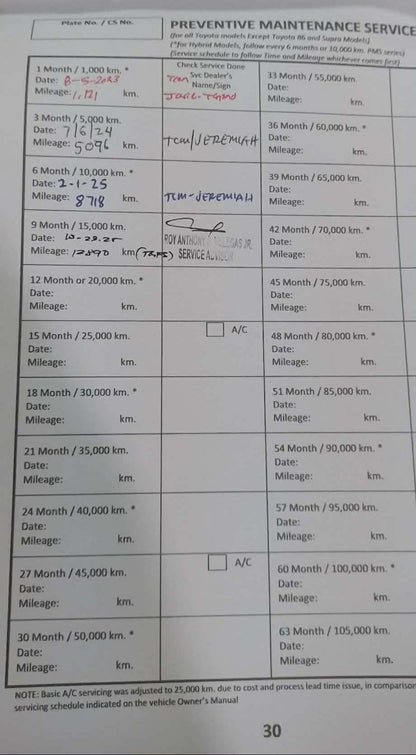 Plate No. / CS No.
PREVENTIVE MAINTENANCE SERVICE
(for all Toyota models Except Toyota 86 and Supra Models)
(*for Hybrid Models, follow every 6 months or 10,000 km. PMS series)
(Service schedule to follow Time and Mileage whichever comes first)
1 Month / 1,000 km. *
Date: 8-5-2023
Mileage: 1,121 km.
Check Service Done
Svc Dealer's
Name/Sign
3 Month / 5,000 km.
Date: 7/6/24
Mileage: 5096 km.
TCM/JEREMIAH
6 Month / 10,000 km. *
Date: 2-1-25
Mileage: 8718 km.
TCM-JEREMIAH
9 Month / 15,000 km.
Date: 10-29-25
Mileage: 12890 km
ROY ANTHONY JR.
SERVICE ADVISOR
12 Month or 20,000 km. *
Date:
Mileage: km.
15 Month / 25,000 km.
Date:
Mileage: km.
A/C
18 Month / 30,000 km. *
Date:
Mileage: km.
21 Month / 35,000 km.
Date:
Mileage: km.
24 Month / 40,000 km. *
Date:
Mileage: km.
27 Month / 45,000 km.
Date:
Mileage: km.
A/C
30 Month / 50,000 km. *
Date:
Mileage: km.
33 Month / 55,000 km.
Date:
Mileage: km.
36 Month / 60,000 km. *
Date:
Mileage: km.
39 Month / 65,000 km.
Date:
Mileage: km.
42 Month / 70,000 km. *
Date:
Mileage: km.
45 Month / 75,000 km.
Date:
Mileage: km.
48 Month / 80,000 km. *
Date:
Mileage: km.
51 Month / 85,000 km.
Date:
Mileage: km.
54 Month / 90,000 km. *
Date:
Mileage: km.
57 Month / 95,000 km.
Date:
Mileage: km.
60 Month / 100,000 km. *
Date:
Mileage: km.
63 Month / 105,000 km.
Date:
Mileage: km.
NOTE: Basic A/C servicing was adjusted to 25,000 km. due to cost and process lead time issue, in comparison
servicing schedule indicated on the vehicle Owner's Manual
30